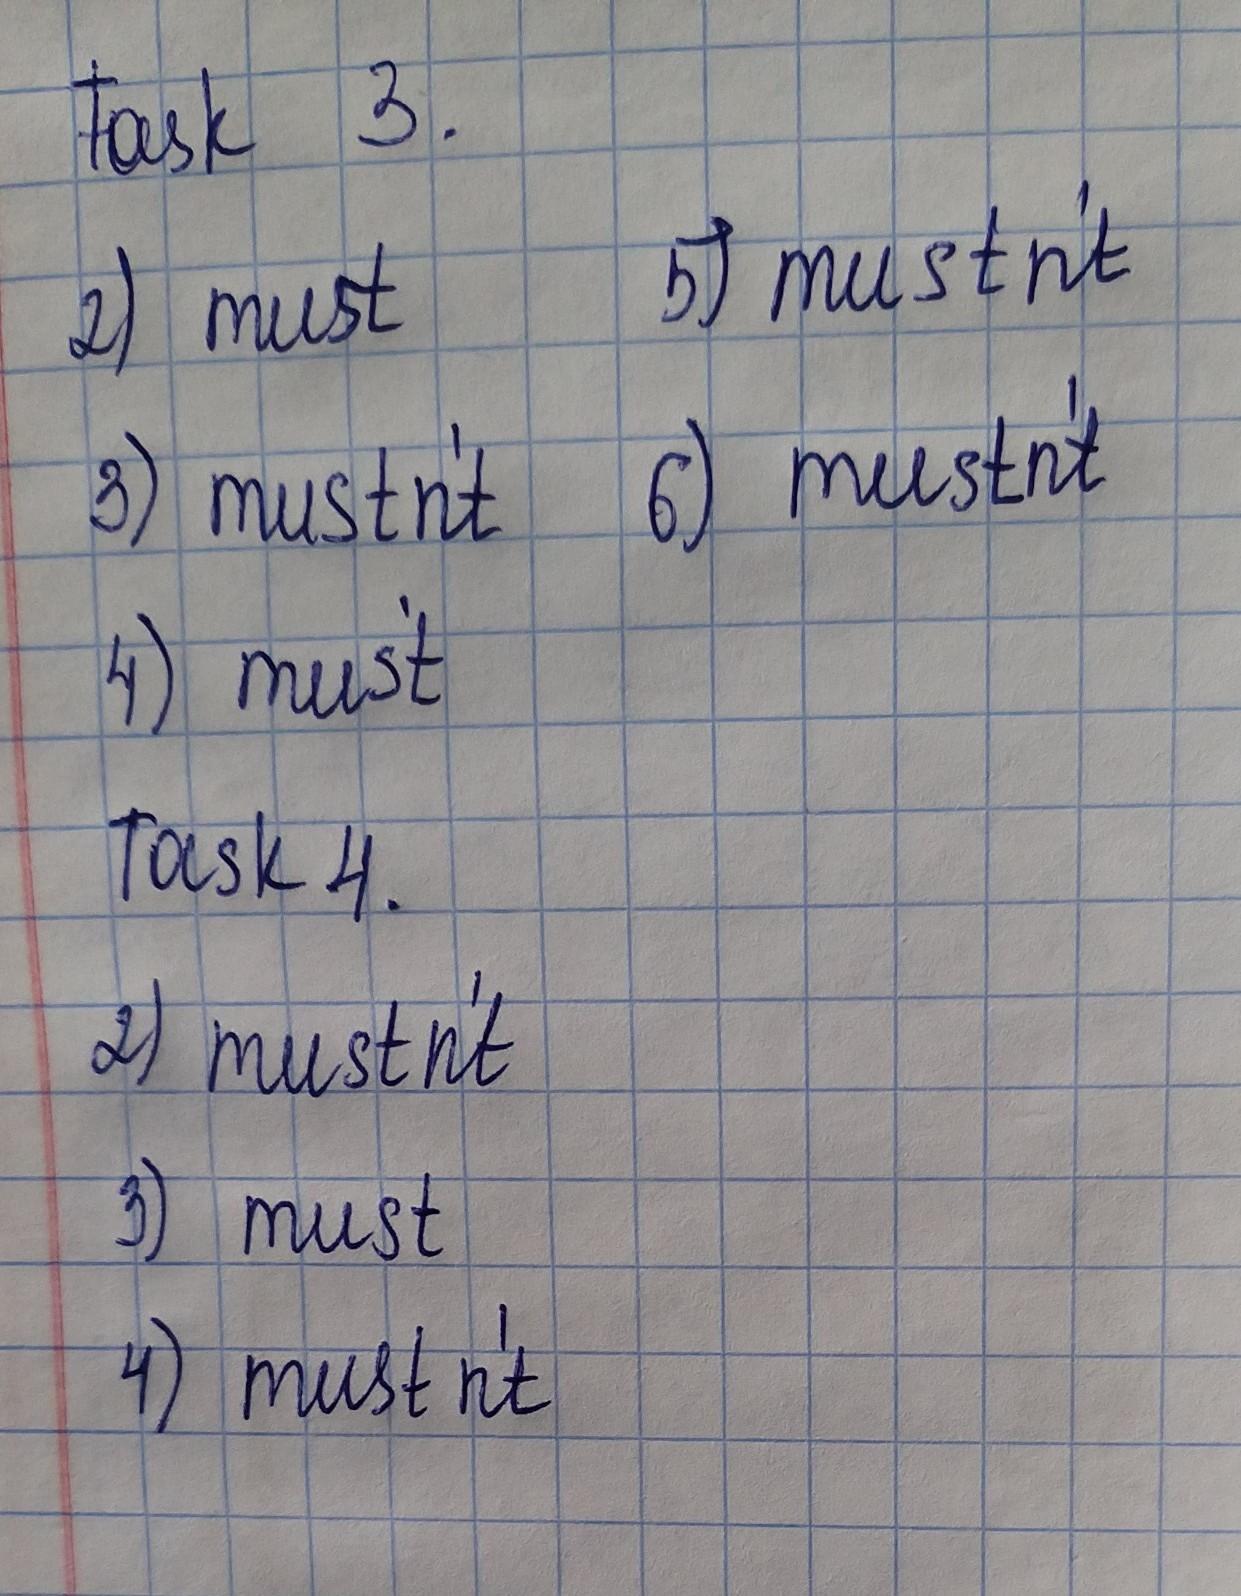 Task 3.
2) must
3) mustn't
4) mus't
5) mustn't
6) mustn't
Task 4.
2) mustn't
3) must
4) mustn't